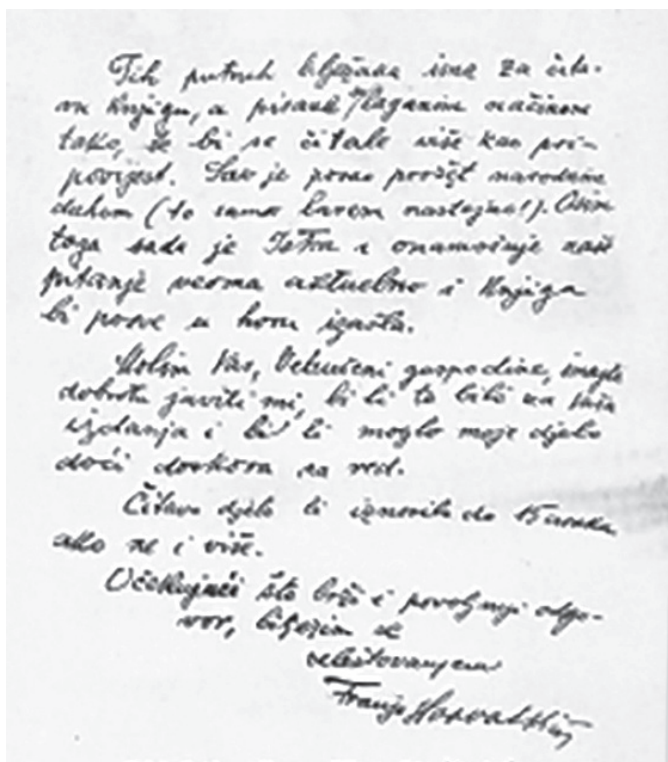 Tih putnih bilježaka ima za čita-
vu knjigu, a pisane laganim načinom
tako, da bi se čitale više kao pri-
povijest. Sav je posao prožet narodnim
duhom (to samo barem nastojao!). Osim
toga sada je Istra i onamošnje naše
pitanje veoma aktuelno i knjiga
bi posve u horu izašla.
Molim Vas, Velecijenjeni gospodine, imajte
dobrotu javiti mi, bi li to bilo za Vaša
izdanja i bi li moglo moje djelo
doći doskora na red.
Čitavo djelo bi iznosilo do 15 araka
ako ne i više.
Očekujući što brži i povoljniji odgo-
vor, bilježim se
sa štovanjem
Franjo Horvat Kiš